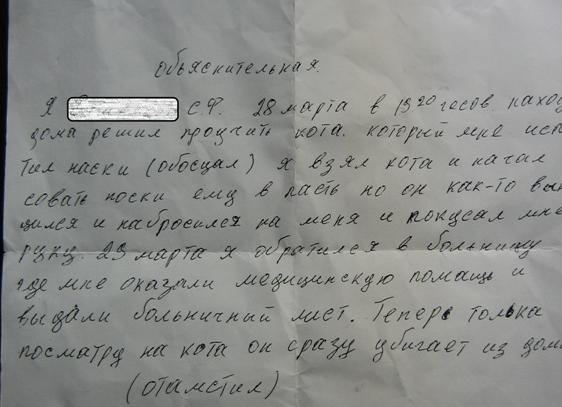 Объяснительная.
Я С.Ф. 28 марта в 19 20 часов наход
дома решил проучить кота. который мне исп
тил наски (обосцал) я взял кота и начал
совать носки ему в пасть но он как-то вы
щился и набросился на меня и покусал мне
руку. 29 марта я обратился в больницу
где мне оказали медицинскую помощь и
выдали больничный лист. Теперь только
посматрю на кота он сразу убигает из дом
(отамстил)